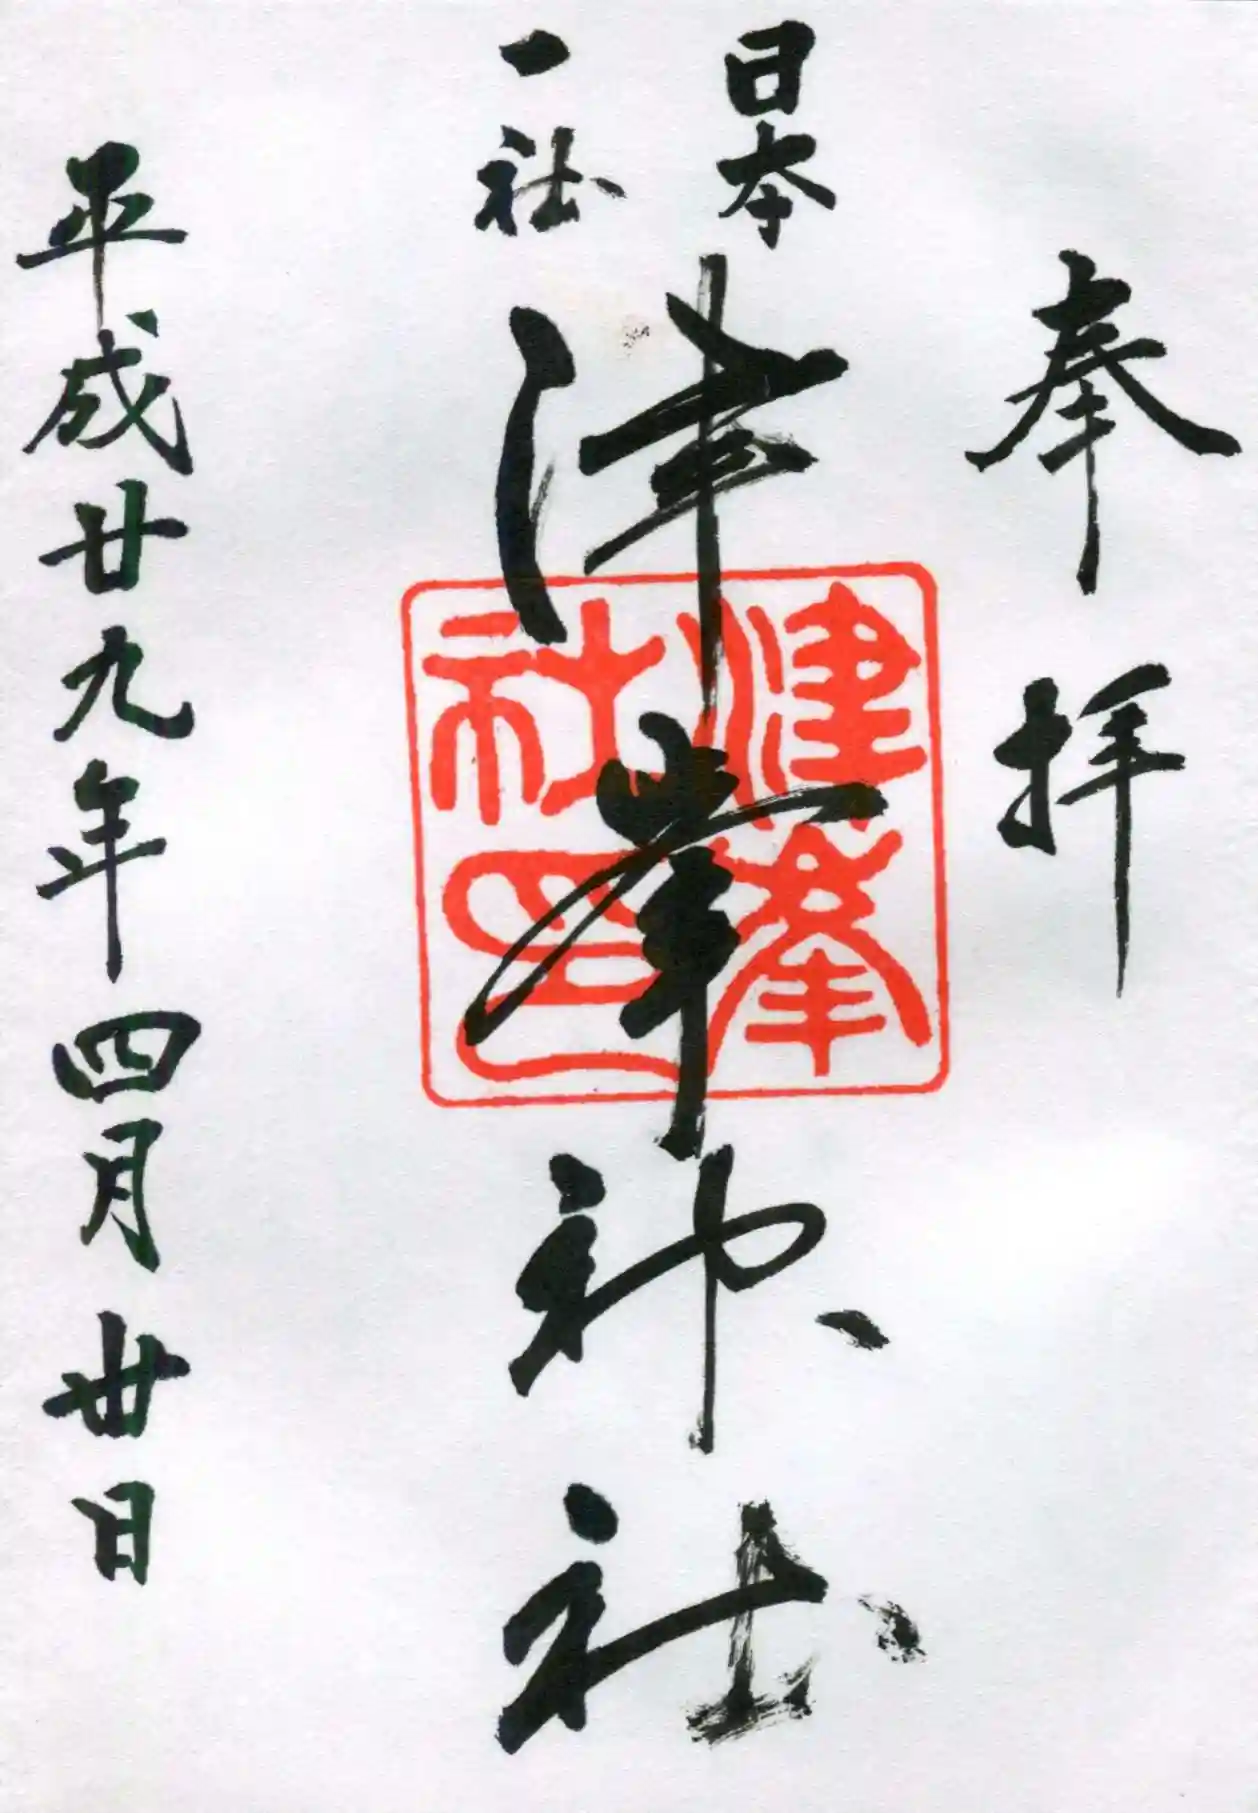 奉拝
日本
一社
津峯神社
津峯
社印
平成廿九年四月丗日